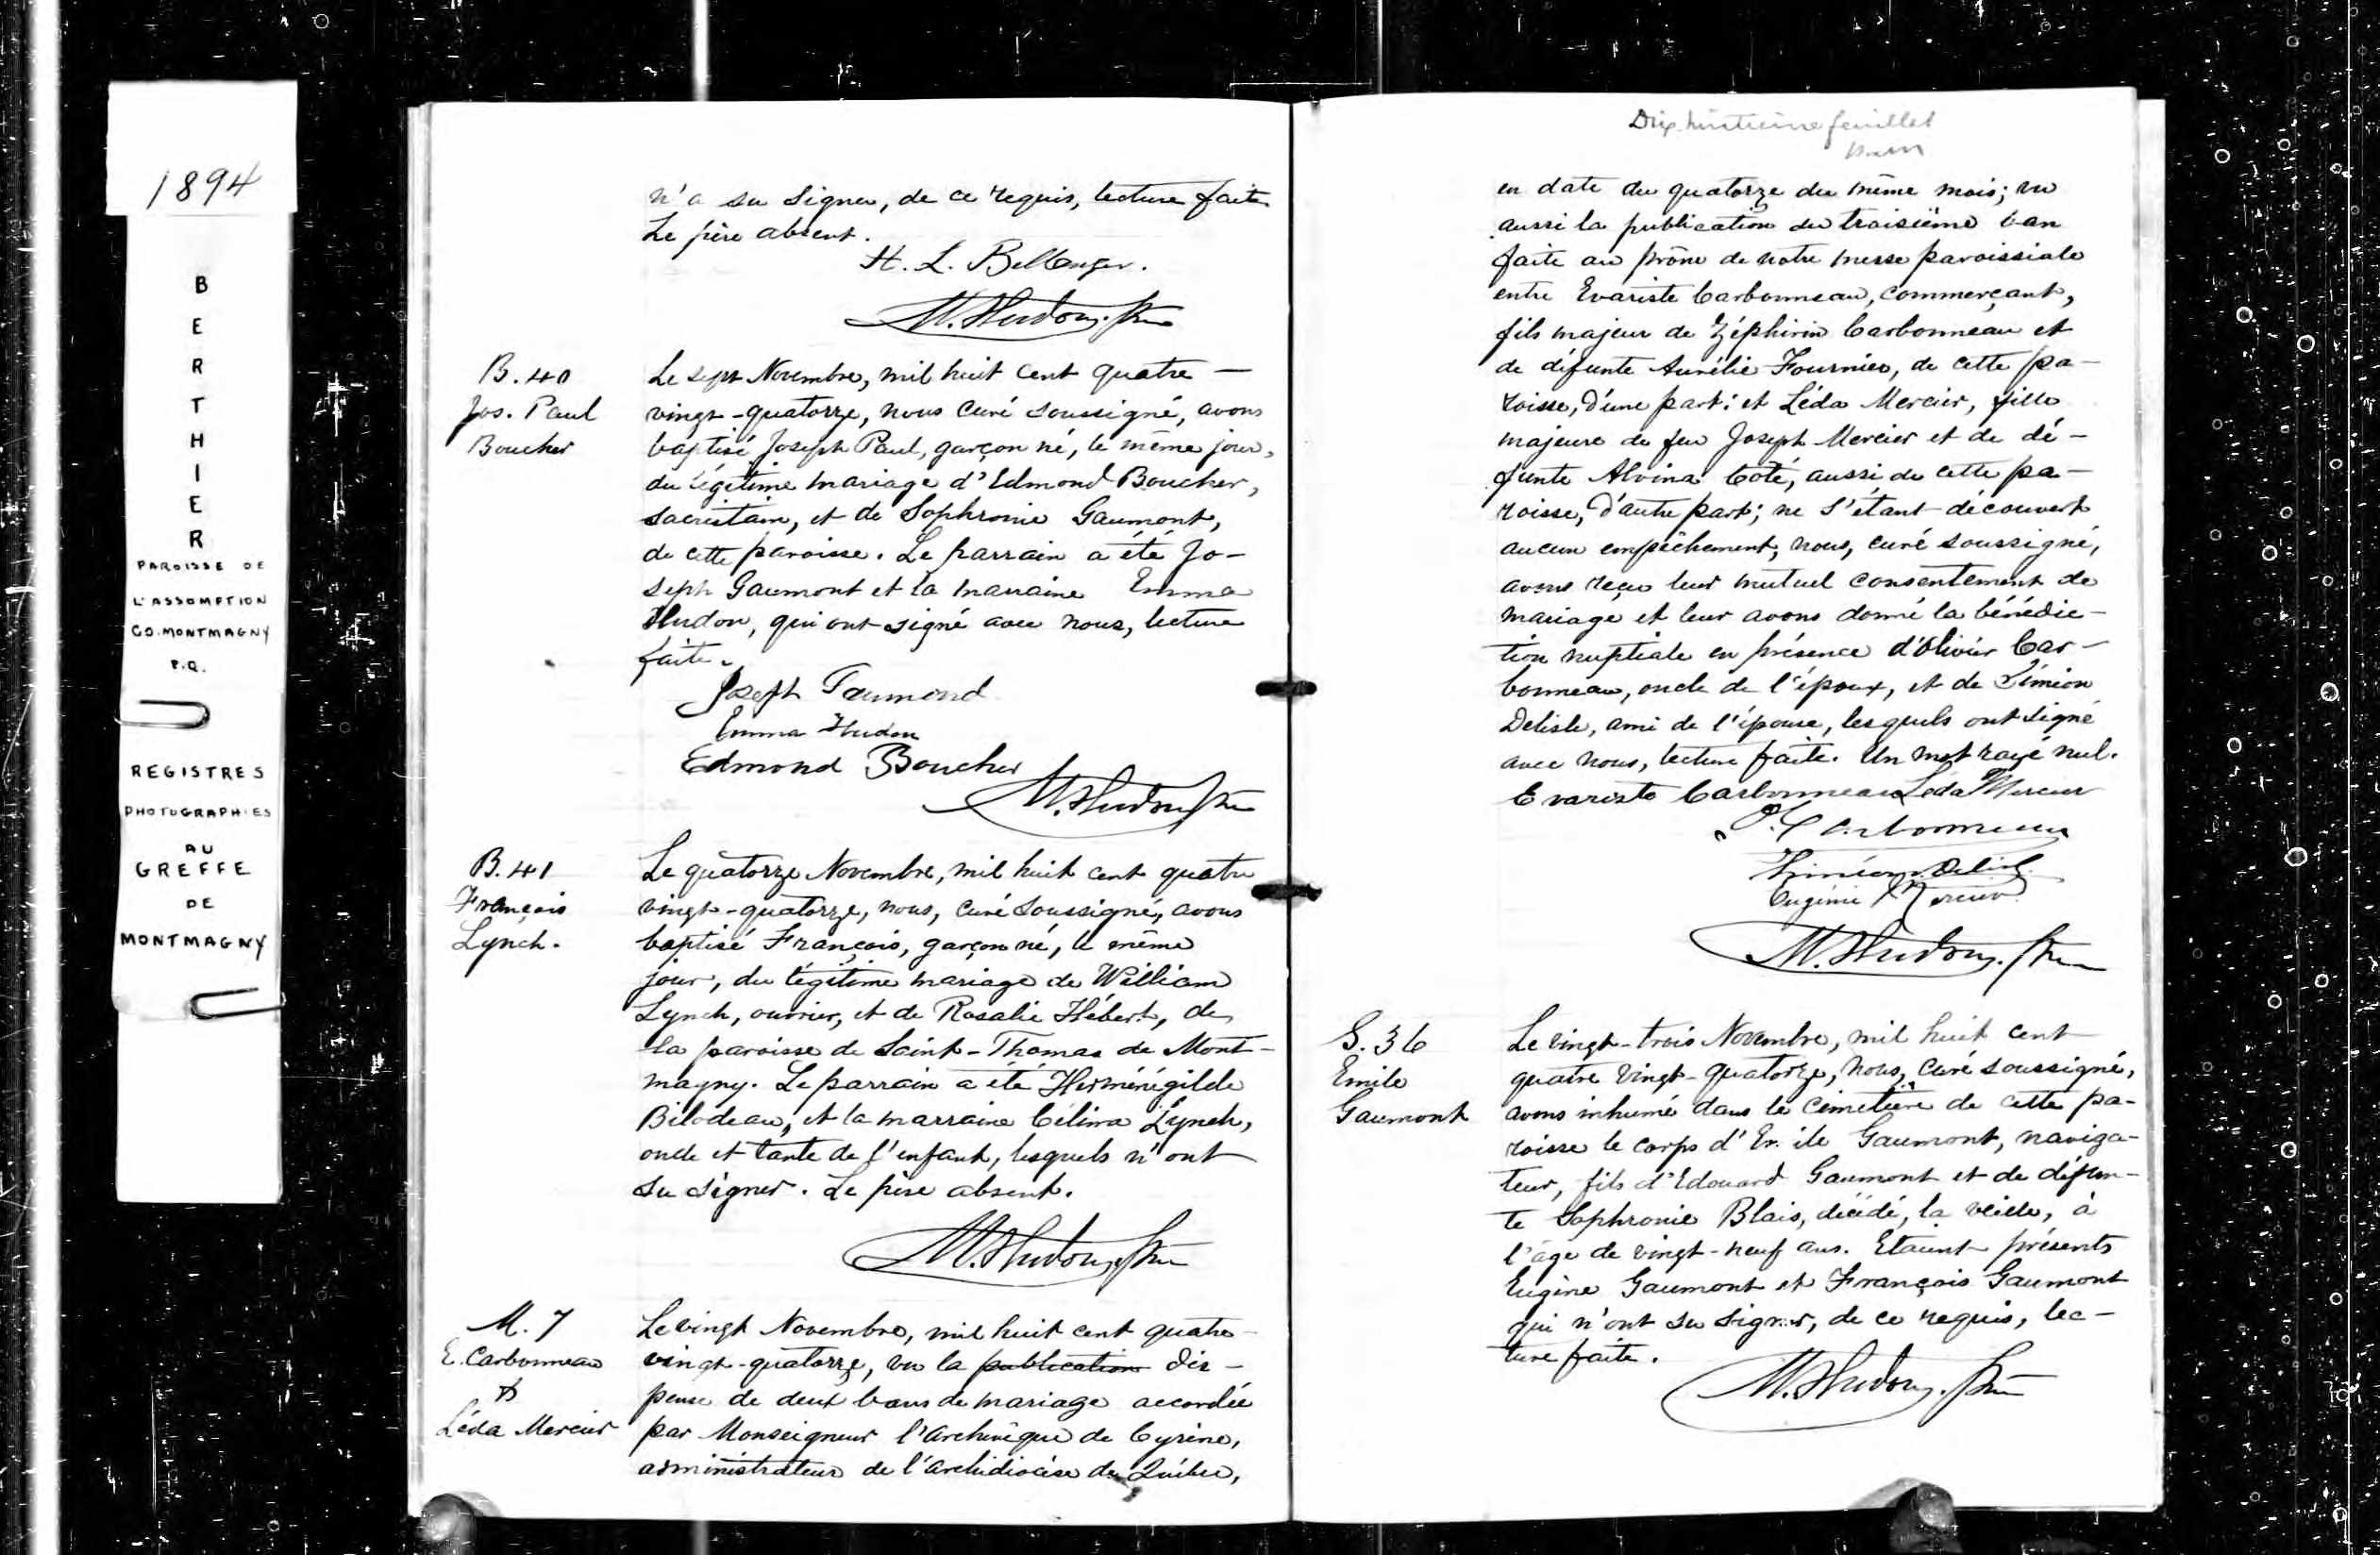 1894
BERTHIER
PAROISSE DE
L'ASSOMPTION
CO. MONTMAGNY
P.Q.
REGISTRES
PHOTOGRAPHIES
AU
GREFFE
DE
MONTMAGNY
n'a su signer, de ce requis, lecture faite.
Le père absent.
H. L. Bellenger.
M. Hudon, Ptre
B. 40
Jos. Paul
Boucher
Le sept Novembre, mil huit cent quatre-
vingt-quatorze, nous curé soussigné, avons
baptisé Joseph Paul, garçon né, le même jour,
du légitime mariage d'Edmond Boucher,
sacristain, et de Sophronie Gaumont,
de cette paroisse. Le parrain a été Jo-
seph Gaumont et la marraine Emma
Hudon, qui ont signé avec nous, lecture
faite.
Joseph Gaumond
Emma Hudon
Edmond Boucher
M. Hudon Ptre
B. 41
François
Lynch.
Le quatorze Novembre, mil huit cent quatre
vingt-quatorze, nous, curé soussigné, avons
baptisé François, garçon né, le même
jour, du légitime mariage de William
Lynch, ouvrier, et de Rosalie Hébert, de
la paroisse de Saint-Thomas de Mont-
magny. Le parrain a été Herménégilde
Bilodeau, et la marraine Célina Lynch,
oncle et tante de l'enfant, lesquels n'ont
su signer. Le père absent.
M. Hudon, Ptre
M. 7
E. Carbonneau
&
Léda Mercier
Le vingt Novembre, mil huit cent quatre-
vingt-quatorze, vu la publication dis-
pense de deux bans de mariage accordée
par Monseigneur l'archevêque de Cyrène,
administrateur de l'archidiocèse de Québec,
Dix-huitième feuillet
en date du quatorze du même mois; vu
aussi la publication du troisième ban
faite au prône de notre messe paroissiale
entre Evariste Carbonneau, commerçant,
fils majeur de Zéphirin Carbonneau et
de défunte Aurélie Fournier, de cette pa-
roisse, d'une part; et Léda Mercier, fille
majeure de feu Joseph Mercier et de dé-
funte Alvina Côté, aussi de cette pa-
roisse, d'autre part; ne s'étant découvert
aucun empêchement, nous, curé soussigné,
avons reçu leur mutuel consentement de
mariage et leur avons donné la bénédic-
tion nuptiale en présence d'Olivier Car-
bonneau, oncle de l'époux, et de Siméon
Delisle, ami de l'épouse, lesquels ont signé
avec nous, lecture faite. Un mot rayé nul.
Evariste Carbonneau Léda Mercier
O. Carbonneau
Siméon Delisle
Eugénie Mercier
M. Hudon, Ptre
S. 36
Emile
Gaumont
Le vingt-trois Novembre, mil huit cent
quatre vingt-quatorze, nous, curé soussigné,
avons inhumé dans le cimetière de cette pa-
roisse le corps d'Emile Gaumont, naviga-
teur, fils d'Edouard Gaumont et de défun-
te Sophronie Blais, décédé, la veille, à
l'âge de vingt-neuf ans. Etaient présents
Eugène Gaumont et François Gaumont
qui n'ont su signer, de ce requis, lec-
ture faite.
M. Hudon, Ptre